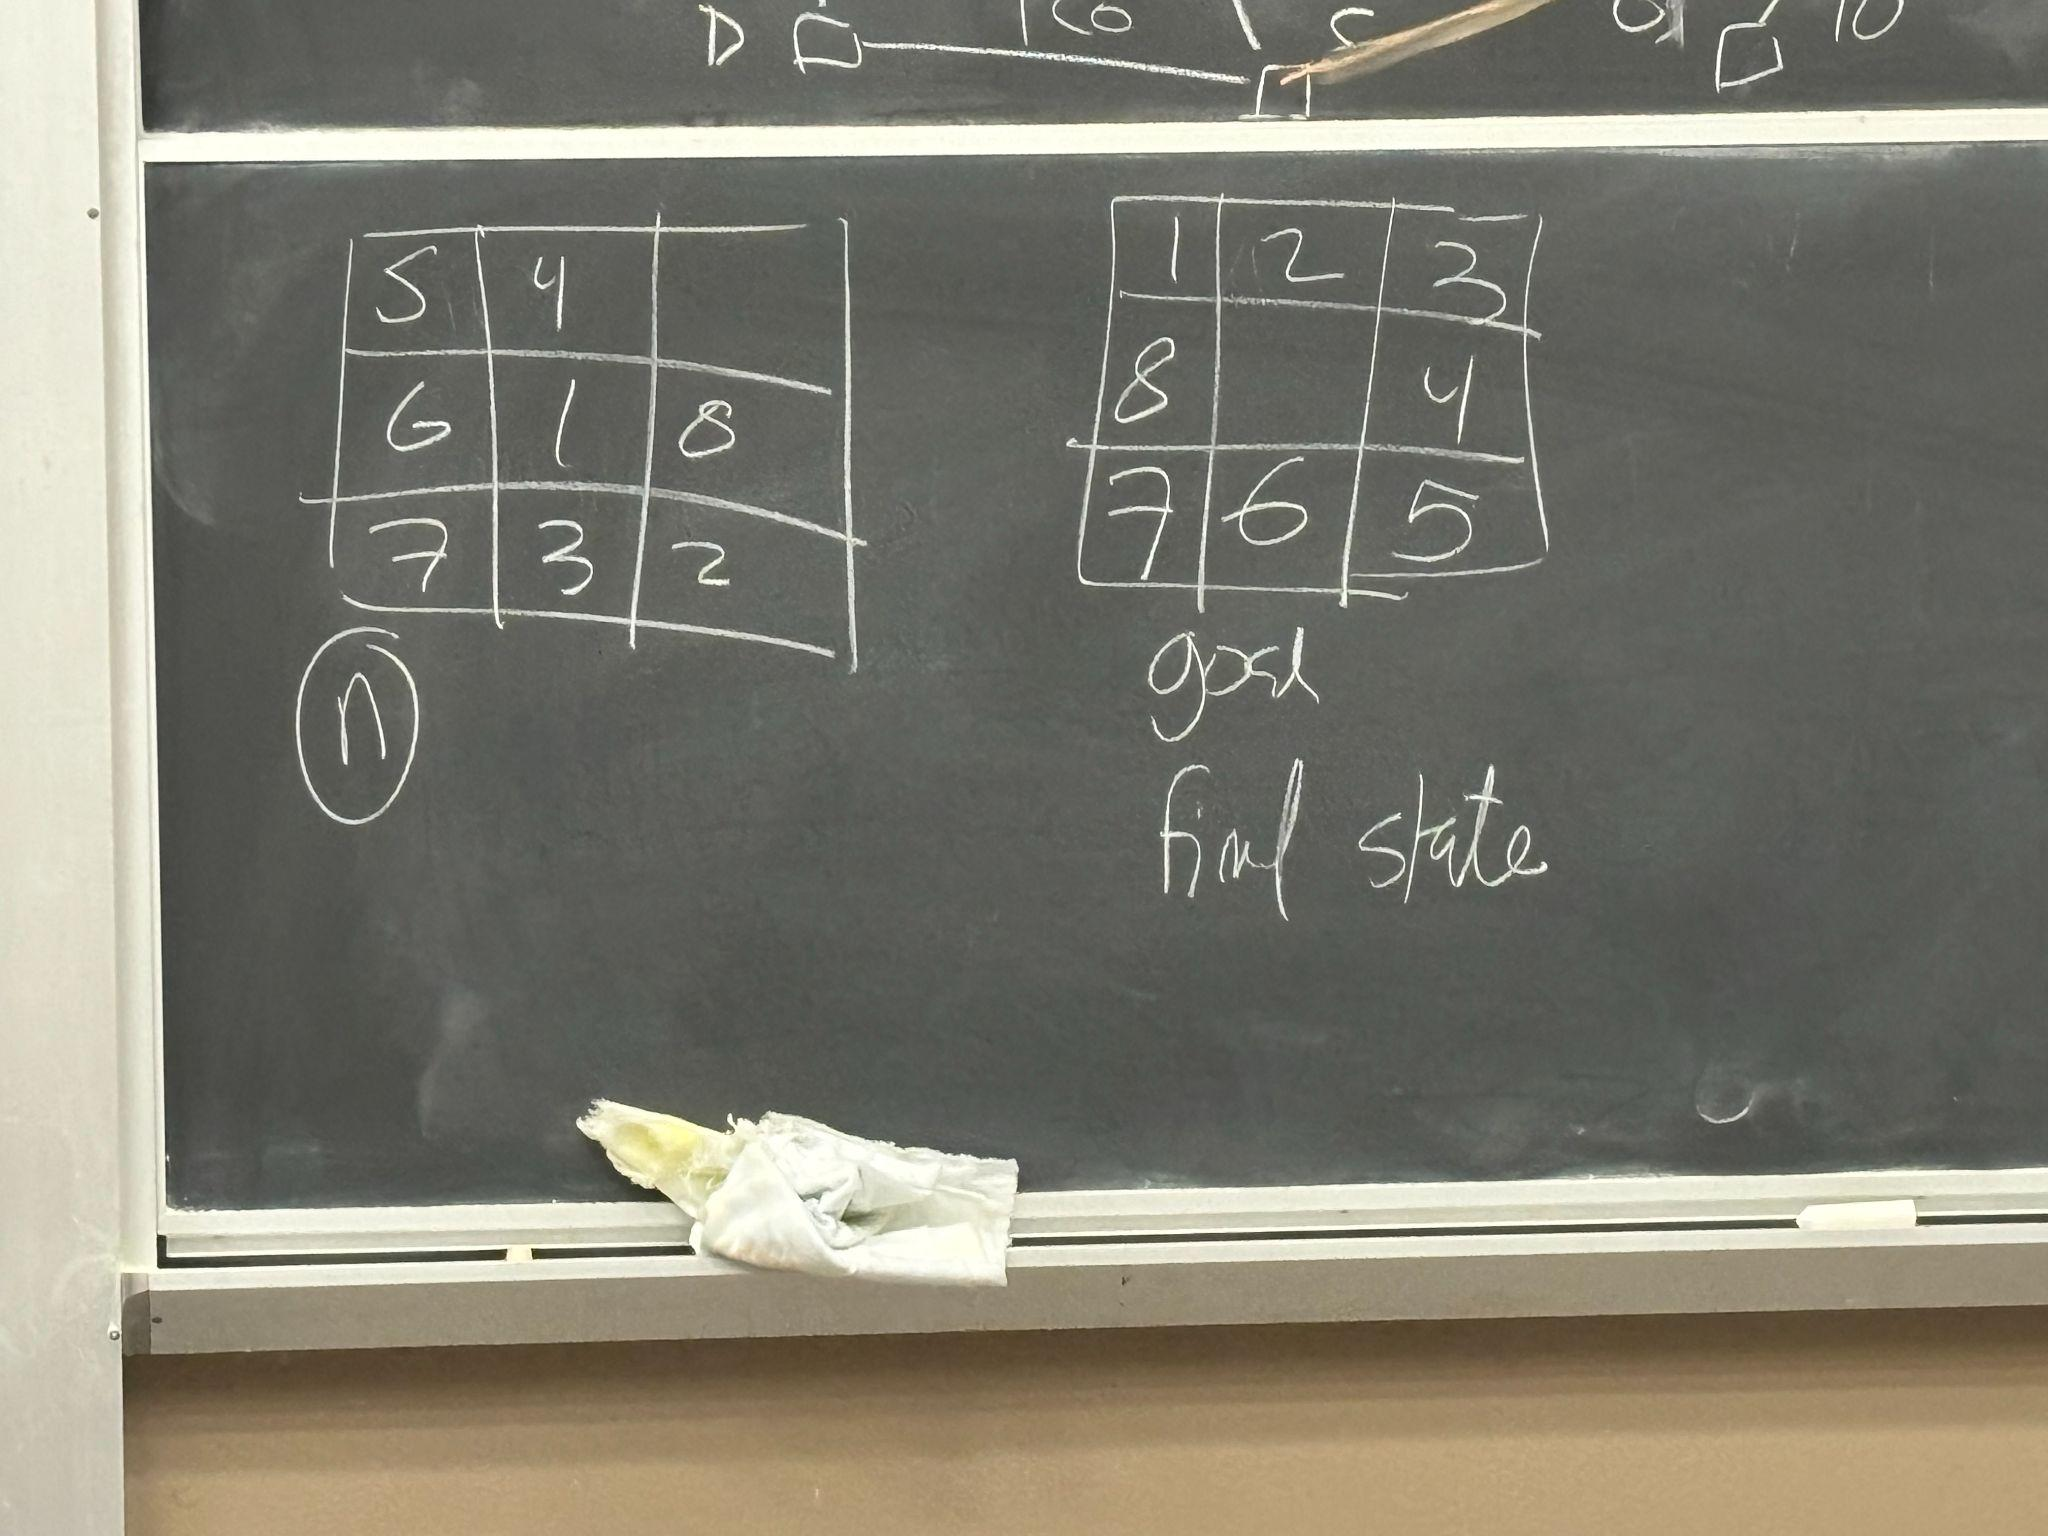 D C 10
5 4
6 1 8
7 3 2
n
1 2 3
8 4
7 6 5
goal
final state